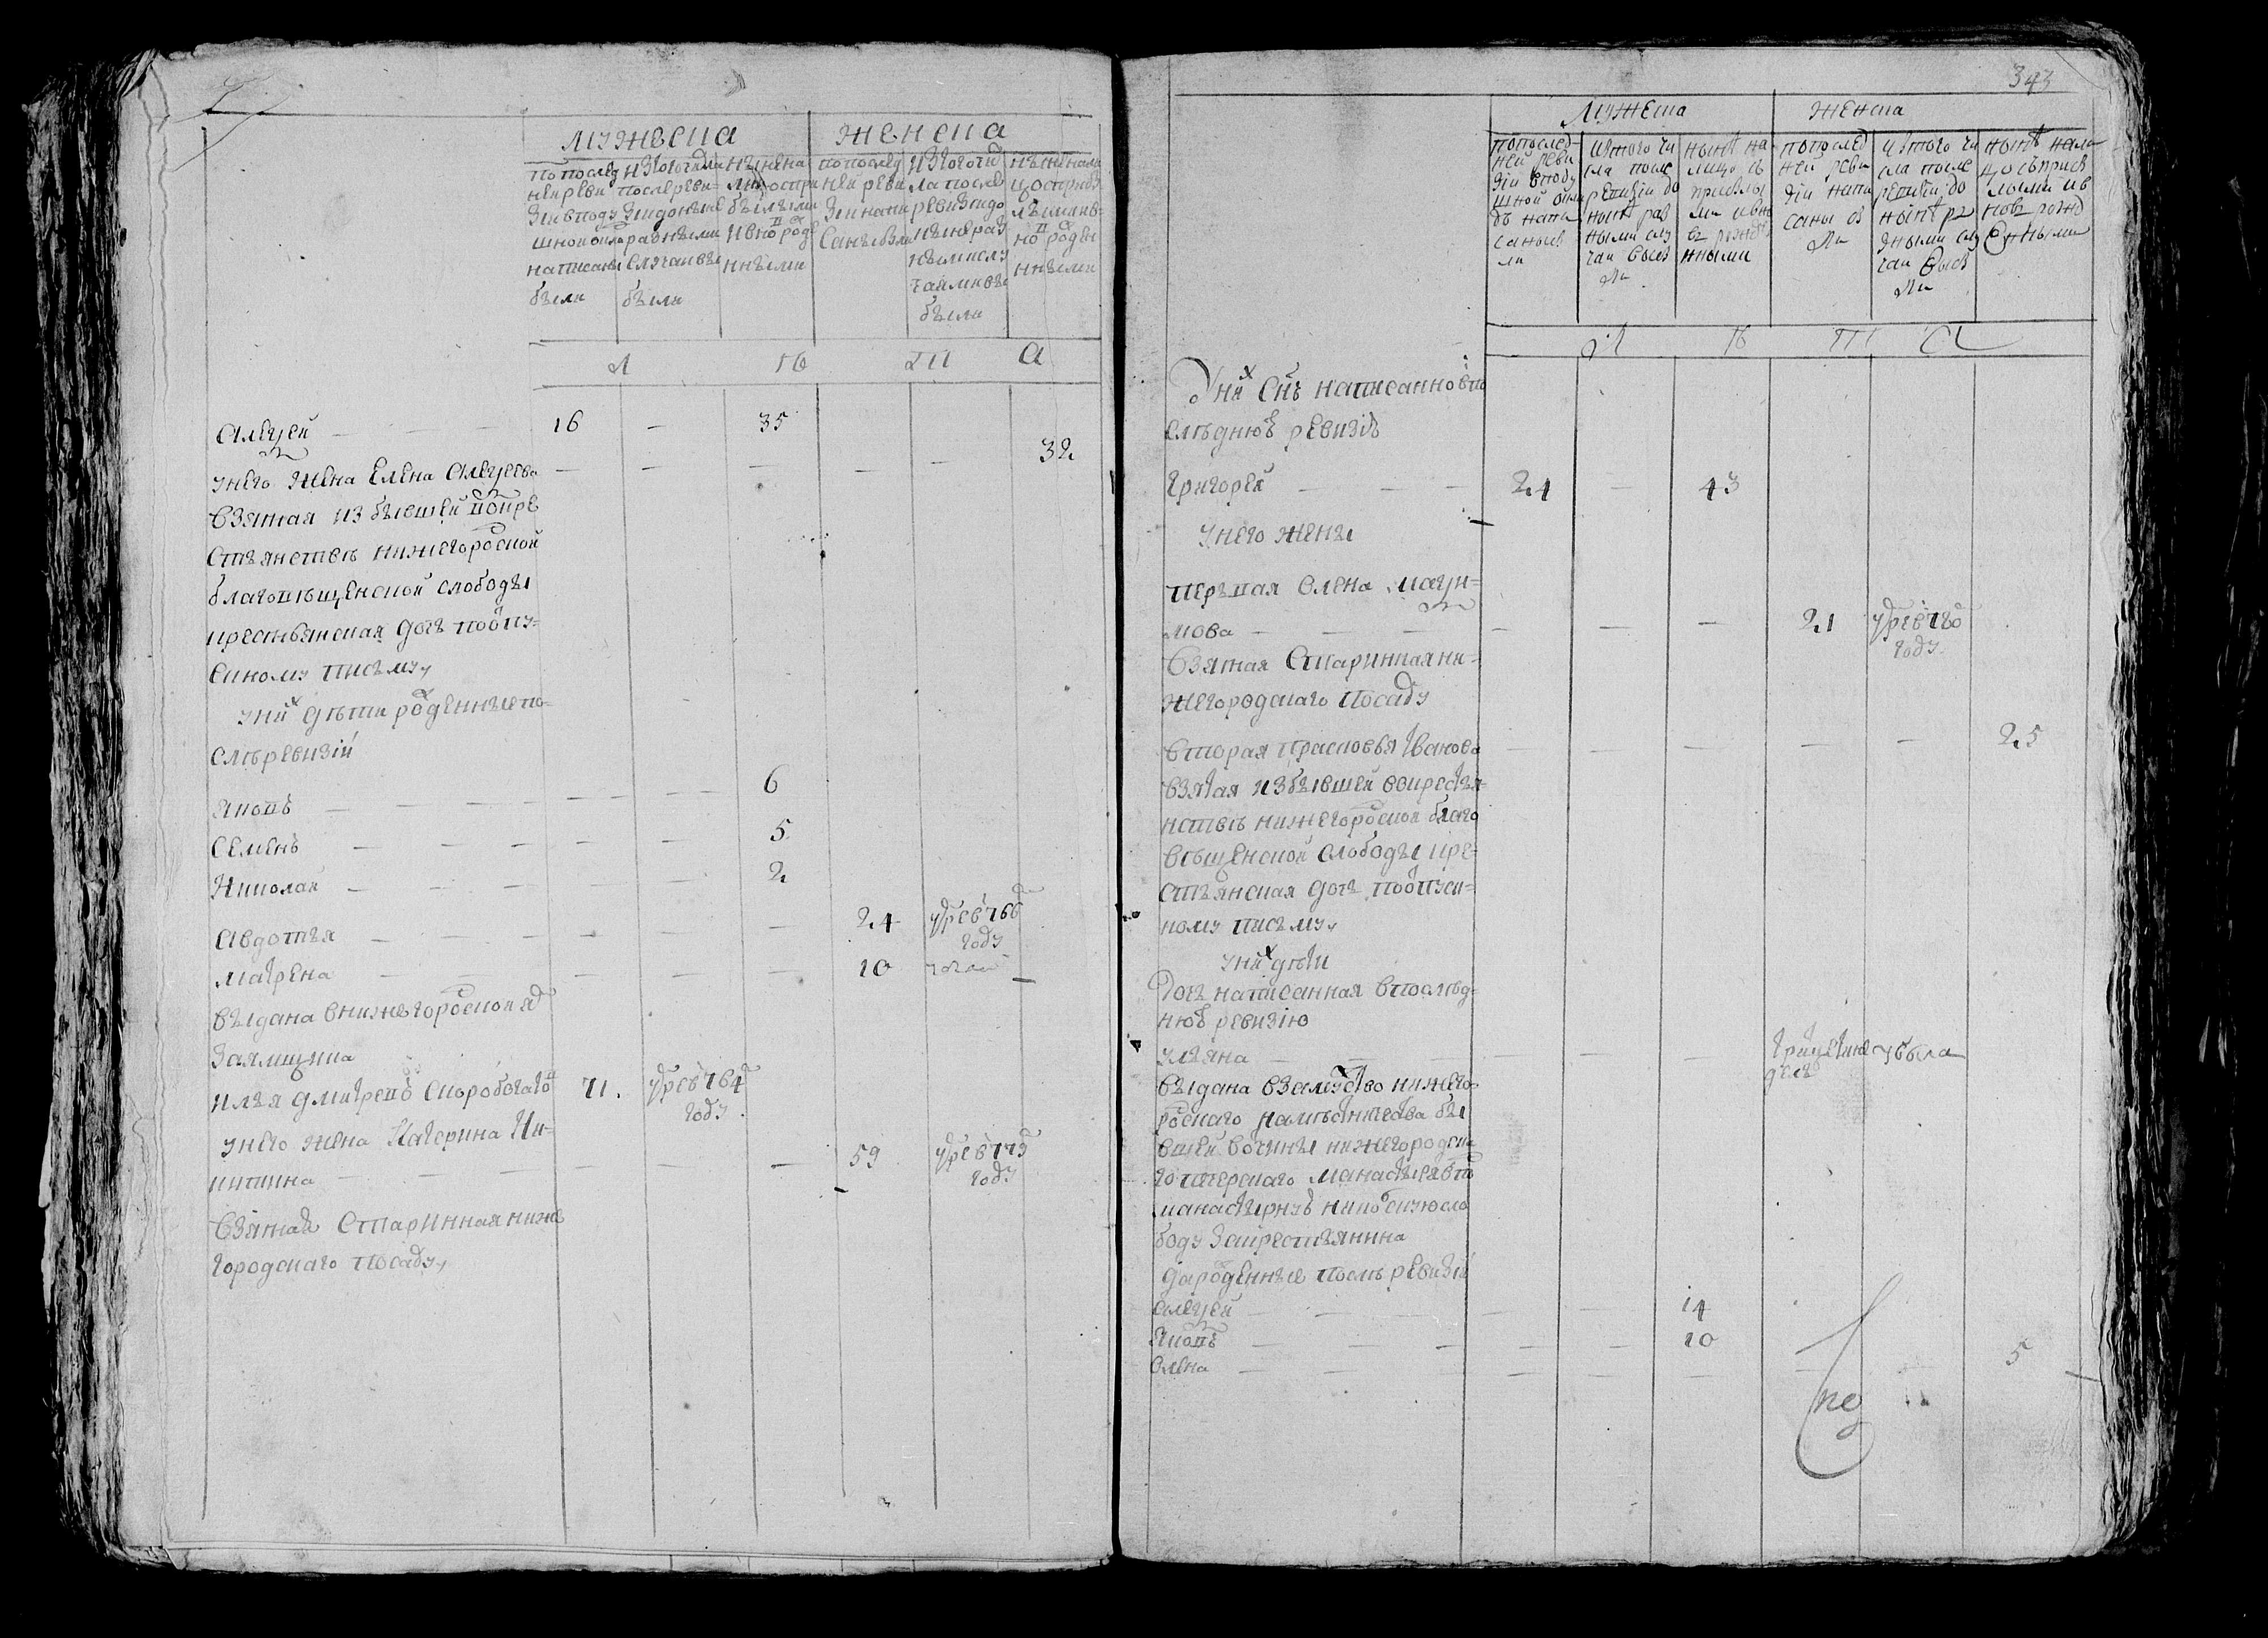 мужеска женска
по послед
ней реви
зии в поду
шной оклад
написаны
были
ис того числа
после реви-
зии до ныне
разными
случаи вы
были
ныне на
лицо с при
былыми
и внов рожде
нными
по послед
ней реви
зии напи
саны были
ис того чи
ла после
ревизии до
ныне раз
ными слу
чаими вы
были
ныне на ли
цо с прибы
лыми и в
новь рожде
нными
Алексей — — — 16 — 35
у него жена Елена Алексеева — — — — — 32
взятая из бывшей в окре
стьянстве нижегородской
благовещенской слободы
крестьянская дочь по отпу-
скному письму
у них дети рожденные по-
сле ревизии
Яков — — — — — — 6
Семен — — — — — 5
Николай — — — — — 2
Авдотья — — — — — — 24 умре в 766 году
Матрена — — — — — 10
выдана в нижегородской
за ямщика
Илья Дмитрев Скоробогатов 71. умре в 764 году
у него жена Катерина Ни-
китина — — — — — — 59 умре в 773 году
взятая старинная ниже
городскаго посаду
343
мужеска женска
по послед-
ней реви
зии в поду
шной окла
д написаны
были
ис того чи
сла после
ревизии до
ныне раз
ными слу
чаи выбы
ли
ныне на
лицо с
прибылы
ми и вно
вь рожде
нными
по послед
ней реви
зии напи
саны бы
ли
ис того чи
сла после
ревизии до
ныне ра
зными слу
чаи выбы
ли
ныне нали
цо с прибы
лыми и в
новь рожд
енными
У них сын написанной в по
следнюю ревизию
Григорей — — — 24 — 43
у него жены
первая Олена Макси-
мова — — — — — — 21 умре в 780 году
взятая старинная ни-
жегородскаго посаду
вторая Прасковья Иванова — — — — — 25
взятая из бывшей во крестья-
нстве нижегородской благо
вещенской слободы кре-
стьянская дочь по отпуск-
ному письму
у них дети
дочь написанная в послед-
нюю ревизию
Ульяна — — — — — —
выдана в замуство нижего-
родскаго наместничества бы
вшей вотчины нижегородска
го печерскаго манастыря в по
манастырную
боду за крестьянина
да рожденные после ревизии
Алексей — — — — 14
Яков — — — — — 10
Олена — — — — — — 5